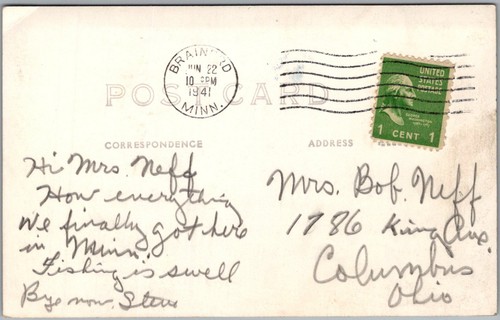 BRAINERD
JUN 22
10 PM
1941
MINN.
UNITED
STATES
POSTAGE
1 CENT 1
POST CARD
CORRESPONDENCE
ADDRESS
Hi Mrs. Neff
How everything
We finally got here
in Minn.
Fishing is swell
Bye now. Steve
Mrs. Bob. Neff
1786 King Ave.
Columbus
Ohio